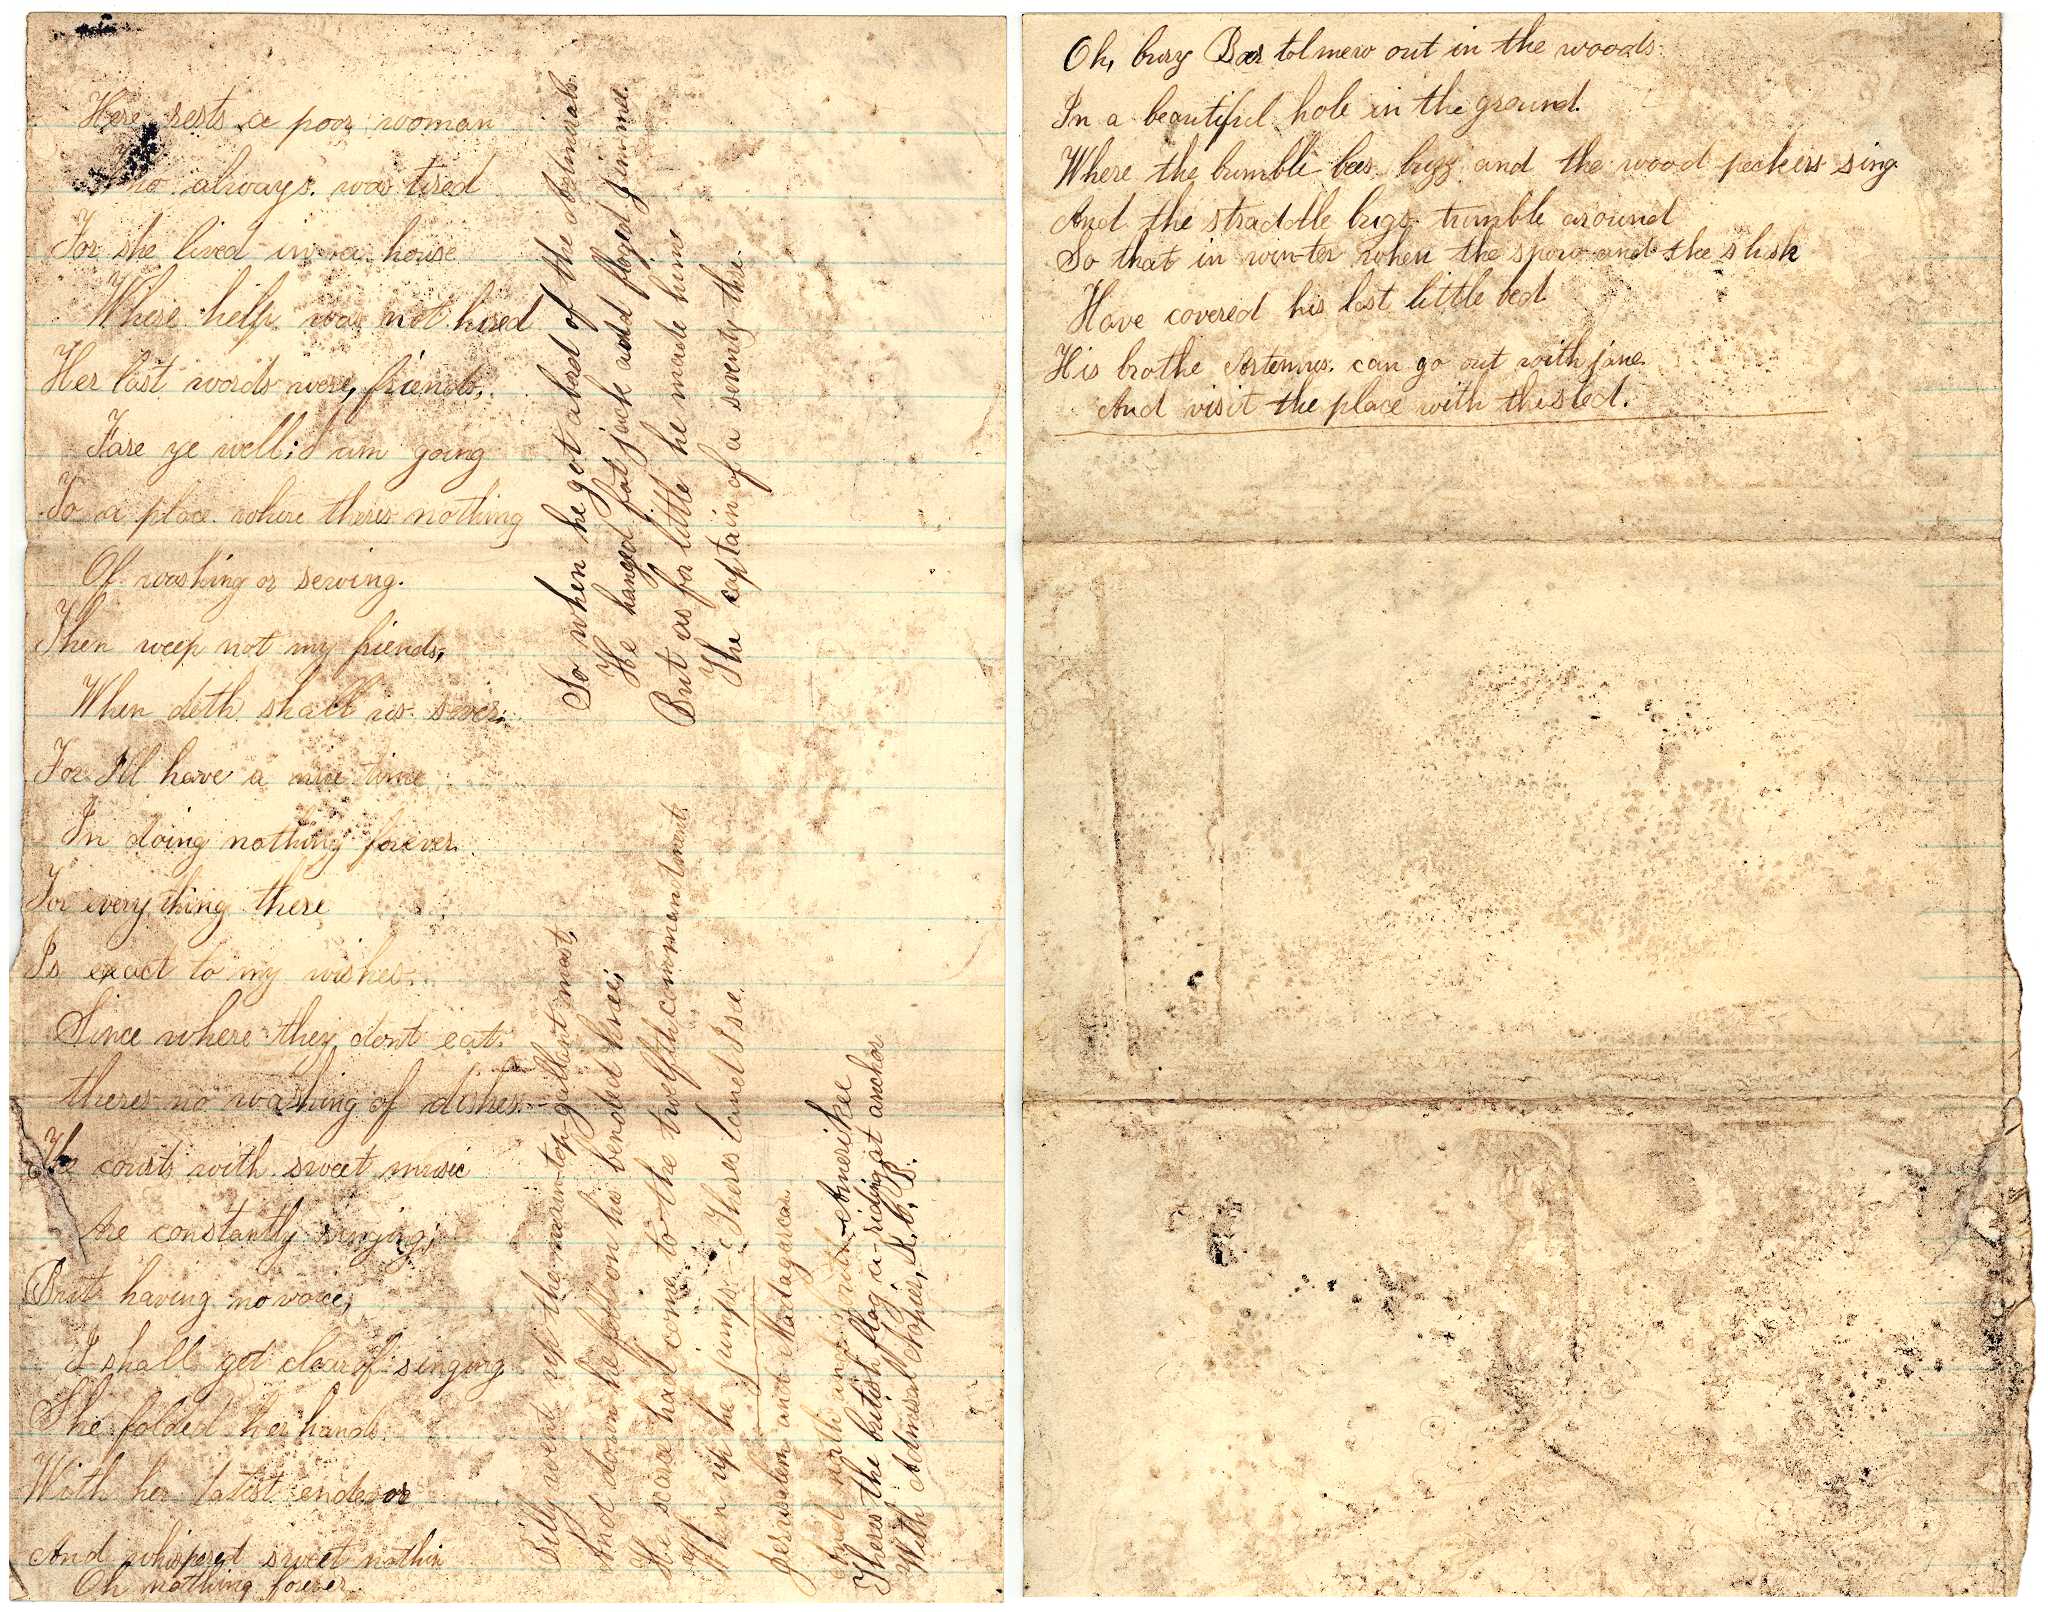 Here rests a poor woman
who always was tired
For she lived in a house
Where help was not hired
Her last words were, friends,
Fare ye well; I am going
To a place where theres nothing
Of washing or sewing.
Then weep not my friends,
When deth shall us sever.
For I'll have a nice time
In doing nothing forever.
For every thing there
Is exact to my wishes.
Since where they dont eat.
theres no washing of dishes.
The courts with sweet music
Are constantly ringing;
But having no voice,
I shall get clear of singing
She folded her hands
With her latest endevor
And whispered sweet nothin
Oh nothing forever.
Billy went up the main-top-gallant mast,
And down he fell on his bended knee;
He scarce had come to the twelfth commandment
When up he jumps - Theres land I see.
Jerusalem and Madagascar
And north and south Amerikee
Theres the british flag a-riding at anchor
With Admiral Napier, K. C. B.
So when he got abord of the abdmirals
He hanged fat jack and floged jimmee.
But as for little he made hime
The captain of a seventy thre.
Oh, bury Bartolmew out in the woods
In a beautiful hole in the ground.
Where the bumble bees buzz and the wood peckers sing
And the straddle bugs tumble around
So that in win-ter when the snow and the slush
Have covered his last little bed
His brothe Artemus can go out with jane
And visit the place with thisled.